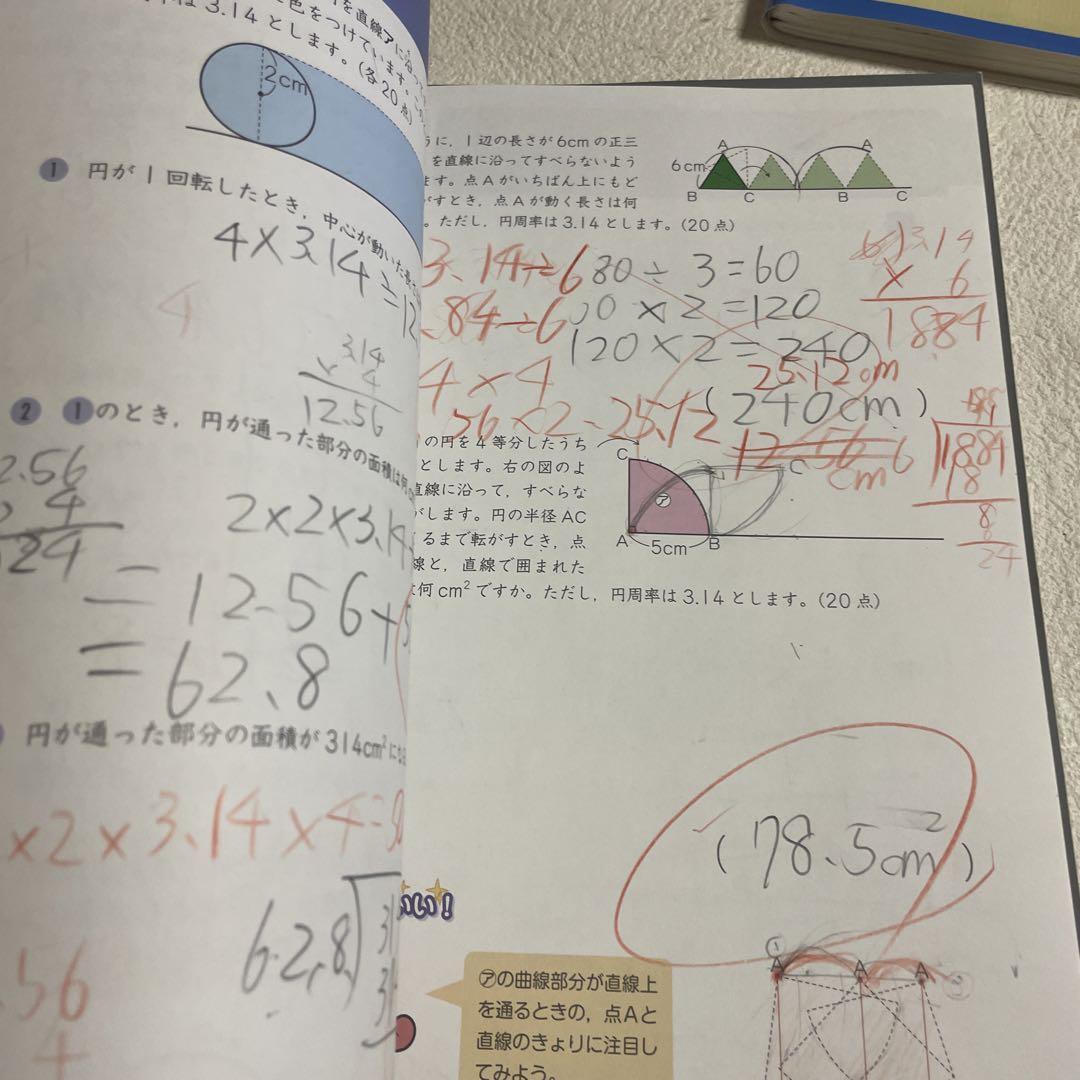 を直線アに沿って
色をつけています。
は3.14とします。(各20点)
2cm
1 円が1回転したとき，中心が動いた長さ
4×3.14=12
4
3.14
× 4
12.56
2 1のとき，円が通った部分の面積は何
2.56
4
24
2×2×3.14
=12.56+
=62.8
円が通った部分の面積が314cm²にな
×2×3.14×4=
62.8
56
うに，1辺の長さが6cmの正三
を直線に沿ってすべらないよう
ます。点Aがいちばん上にもど
がすとき，点Aが動く長さは何
。ただし，円周率は3.14とします。(20点)
6cm
A
A
B
C
B
C
3.14÷6
80÷3=60
.84÷6
0×2=120
120×2=240
4×4
25.12cm
56×2=25.12
(240cm)
12.56cm
3.14
× 6
1884
6
1884
18
8
24
の円を4等分したうち
とします。右の図のよ
直線に沿って，すべらな
がします。円の半径AC
るまで転がすとき，点
線と，直線で囲まれた
何cm²ですか。ただし，円周率は3.14とします。(20点)
C
ア
C
A
5cm
B
(78.5cm²)
いい!
アの曲線部分が直線上
を通るときの，点Aと
直線のきょりに注目し
てみよう。
①
A
A
A
②